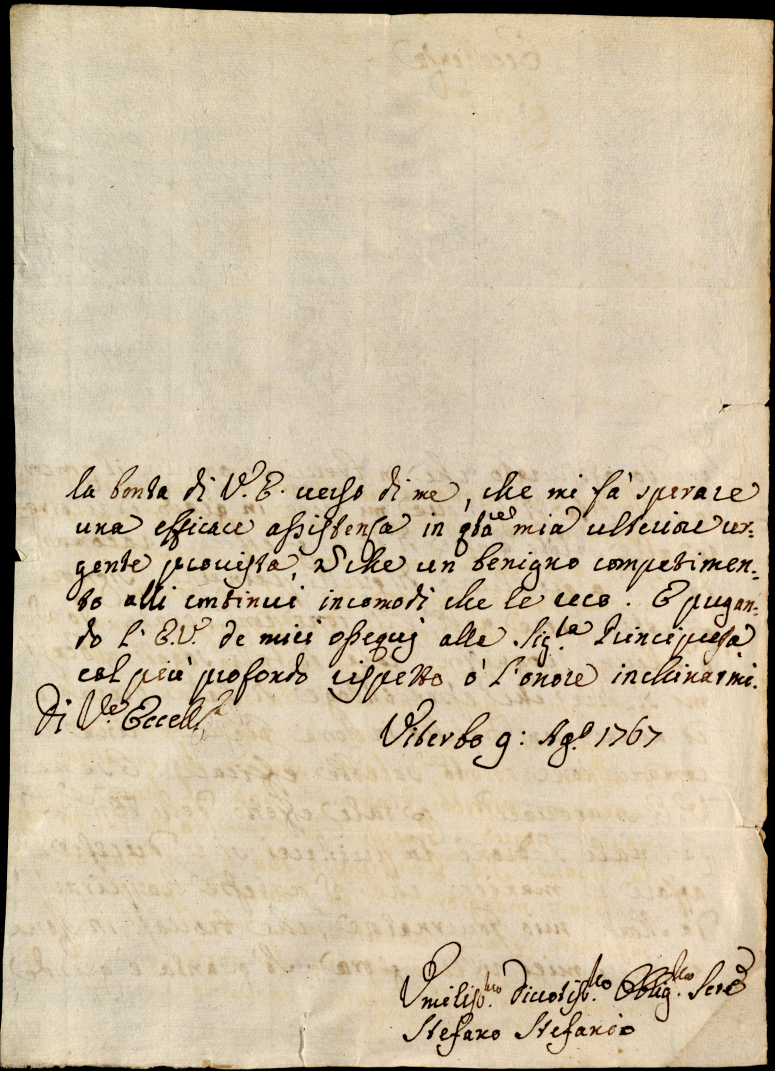 la bontà di V.ª E. verso di me, che mi fà sperare
una efficace assistenza in qtà mia ulteriore ur-
gente provista, che un benigno compatimen-
to alli continui incomodi che le reco. E pregan-
do l'E.V.ª de miei ossequj alla Sig.ra Principessa
col più profondo rispetto ò l'onore inchinarmi.
Di V.ª Eccell.za
Viterbo 9: Ag.º 1767
Umiliss.mo Divotiss.mo Obblig.mo Ser.e
Stefano Stefanio